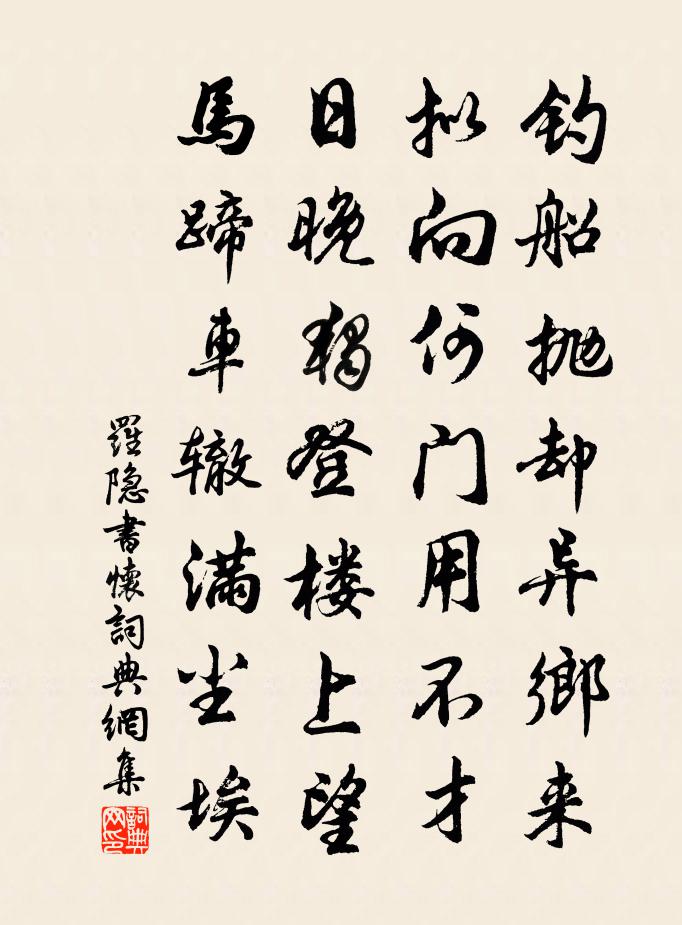 钓船抛却异鄉来
拟向何门用不才
日晚独登楼上望
馬蹄車辙满尘埃
羅隐書懷詞典網集
詞典网印